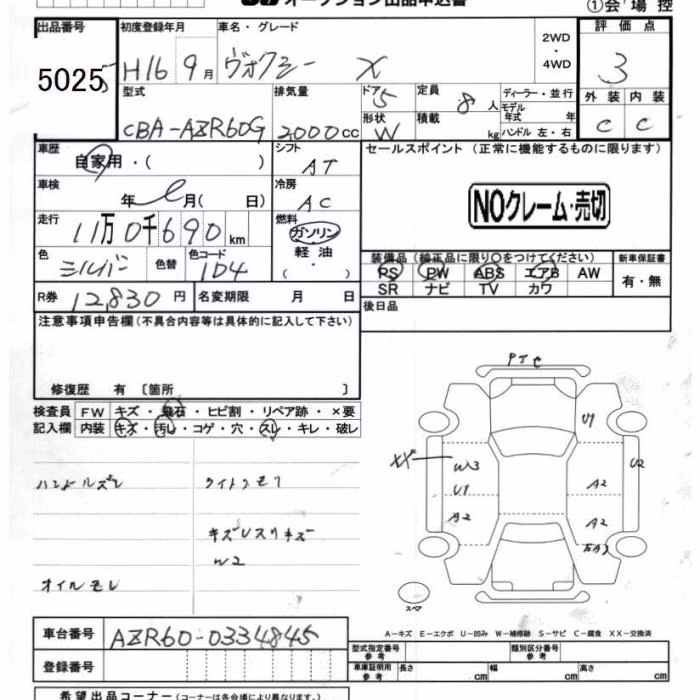 オークション出品申込書
①会場控
出品番号 初度登録年月 車名・グレード 2WD・4WD 評価点
5025 H16 9月 ヴォクシー X 3
型式 排気量 ドア 5 定員 8人 ディーラー・並行 外装 内装
モデル年式 年
CBA-AZR60G 2000cc 形状 W 積載 kg ハンドル 左・右 C C
車歴 自家用・( ) シフト AT セールスポイント (正常に機能するものに限ります)
車検 年 月( 日) 冷房 AC
NOクレーム・売切
走行 11万0千690km 燃料 ガソリン・軽油・( )
色 シルバー 色替 色コード 1D4
装備品 (純正品に限り〇をつけてください) 新車保証書
PS PW ABS エアB AW 有・無
SR ナビ TV カワ
R券 12,830円 名変期限 月 日 後日品
注意事項申告欄 (不具合内容等は具体的に記入して下さい)
修復歴 有 〔箇所 〕
検査員記入欄 FW キズ・飛石・ヒビ割・リペア跡・×要
内装 キズ・汚れ・コゲ・穴・スレ・キレ・破レ
ハンドルズレ
オイルモレ
W2
U1
XX
W3
U2
U1
A2
A2
A2
スペア
A-キズ E-エクボ U-凹み W-補修跡 S-サビ C-腐食 XX-交換済
車台番号 AZR60-0334845
型式指定番号 参考 類別区分番号 参考
登録番号
車庫証明用 参考 長さ cm 幅 cm 高さ cm
希望出品コーナー (コーナーは各会場により異なります。)